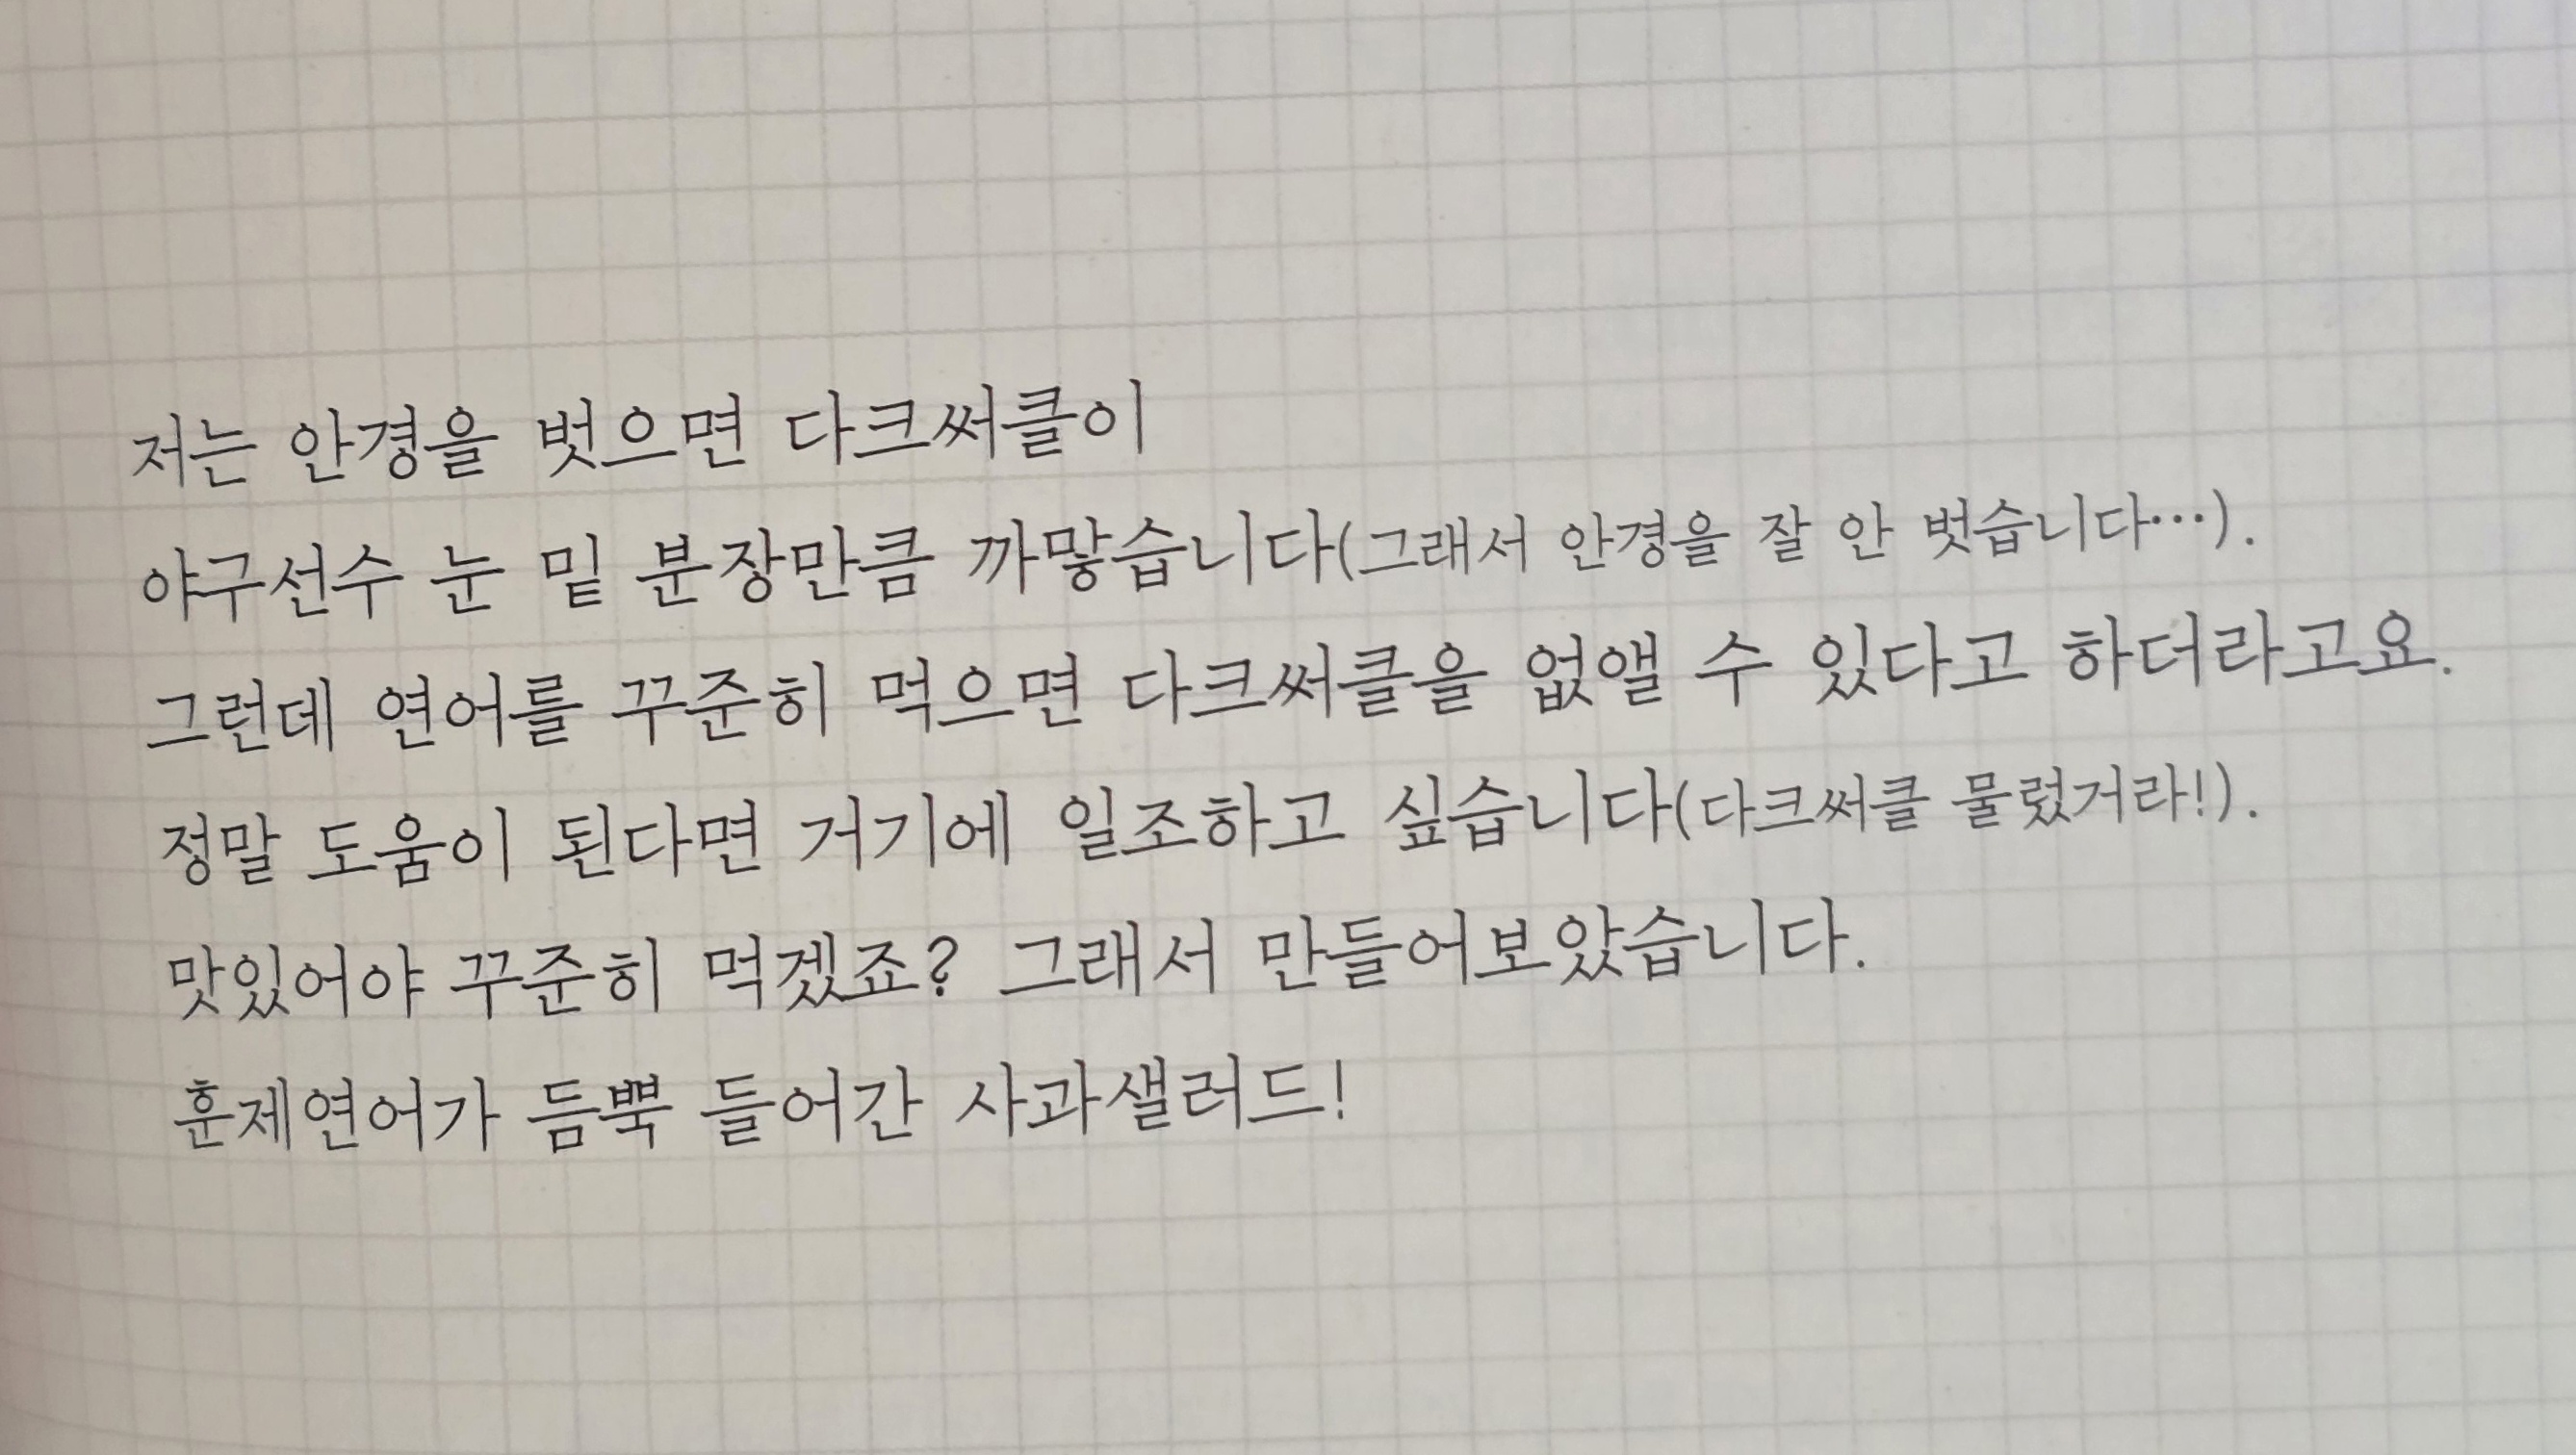 저는 안경을 벗으면 다크써클이
야구선수 눈 밑 분장만큼 까맣습니다(그래서 안경을 잘 안 벗습니다…).
그런데 연어를 꾸준히 먹으면 다크써클을 없앨 수 있다고 하더라고요.
정말 도움이 된다면 거기에 일조하고 싶습니다(다크써클 물렀거라!).
맛있어야 꾸준히 먹겠죠? 그래서 만들어보았습니다.
훈제연어가 듬뿍 들어간 사과샐러드!